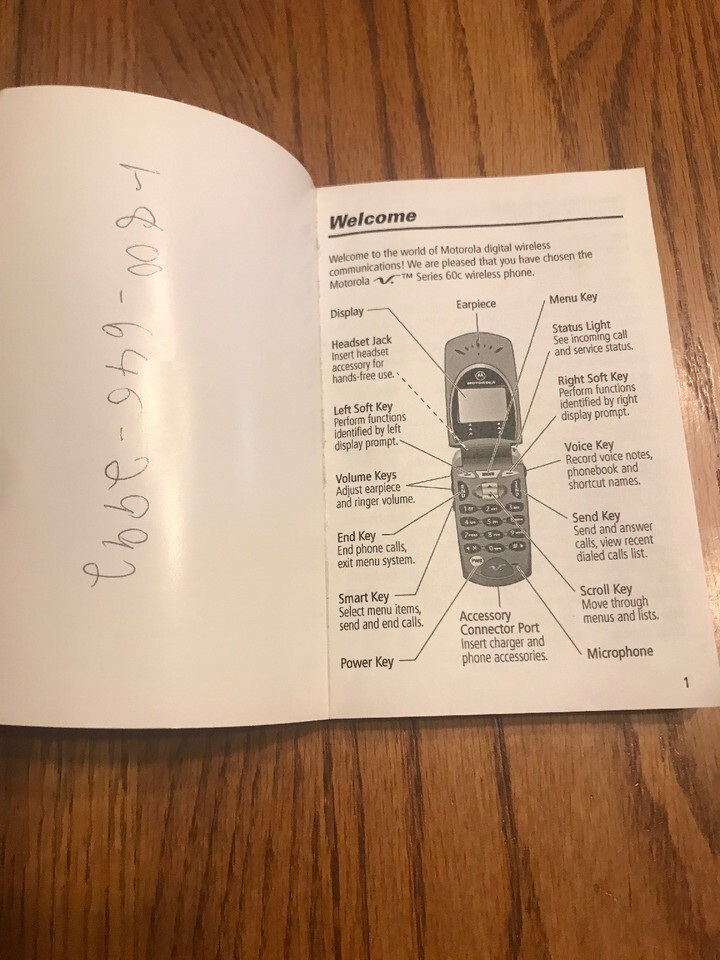 1-800-646-2992
Welcome
Welcome to the world of Motorola digital wireless
communications! We are pleased that you have chosen the
Motorola V.™ Series 60c wireless phone.
Display
Earpiece
Menu Key
Headset Jack
Insert headset
accessory for
hands-free use.
Status Light
See incoming call
and service status.
Left Soft Key
Perform functions
identified by left
display prompt.
Right Soft Key
Perform functions
identified by right
display prompt.
Volume Keys
Adjust earpiece
and ringer volume.
Voice Key
Record voice notes,
phonebook and
shortcut names.
End Key
End phone calls,
exit menu system.
Send Key
Send and answer
calls, view recent
dialed calls list.
Smart Key
Select menu items,
send and end calls.
Scroll Key
Move through
menus and lists.
Power Key
Accessory
Connector Port
Insert charger and
phone accessories.
Microphone
MOTOROLA
MENU
PWR
1